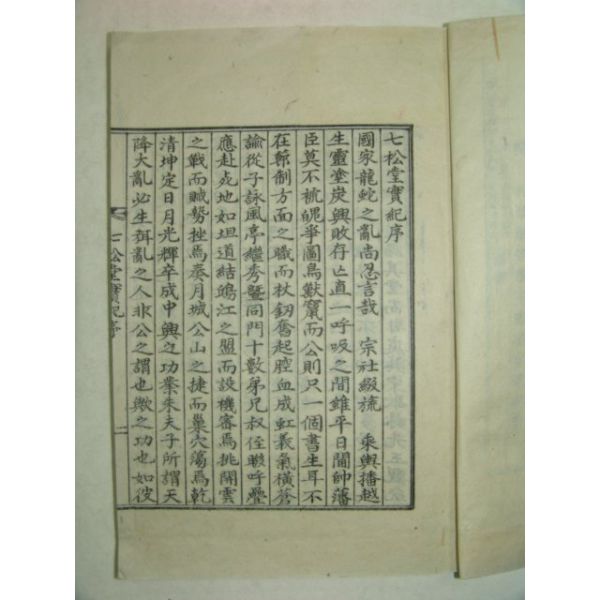 七松堂實紀序
國家龍蛇之亂尚忍言哉 宗社綴旒 乘輿播越
生靈塗炭興敗存亡直一呼吸之間雖平日閫帥藩
臣莫不褫魄爭圖鳥獸竄而公則只一個書生耳不
在節制方面之職而杖釼奮起腔血成虹義氣橫蒼
諭從子詠風亭繼秀曁同門十數弟兄叔侄聯呼疊
應赴死地如坦道結鴻江之盟而設機審焉挑鬪雲
之戰而賊勢挫焉奏月城公山之捷而巢穴蕩焉乾
清坤定日月光輝卒成中興之功業朱夫子所謂天
降大亂必生弭亂之人非公之謂也歟之功也如彼
七松堂實紀序
一